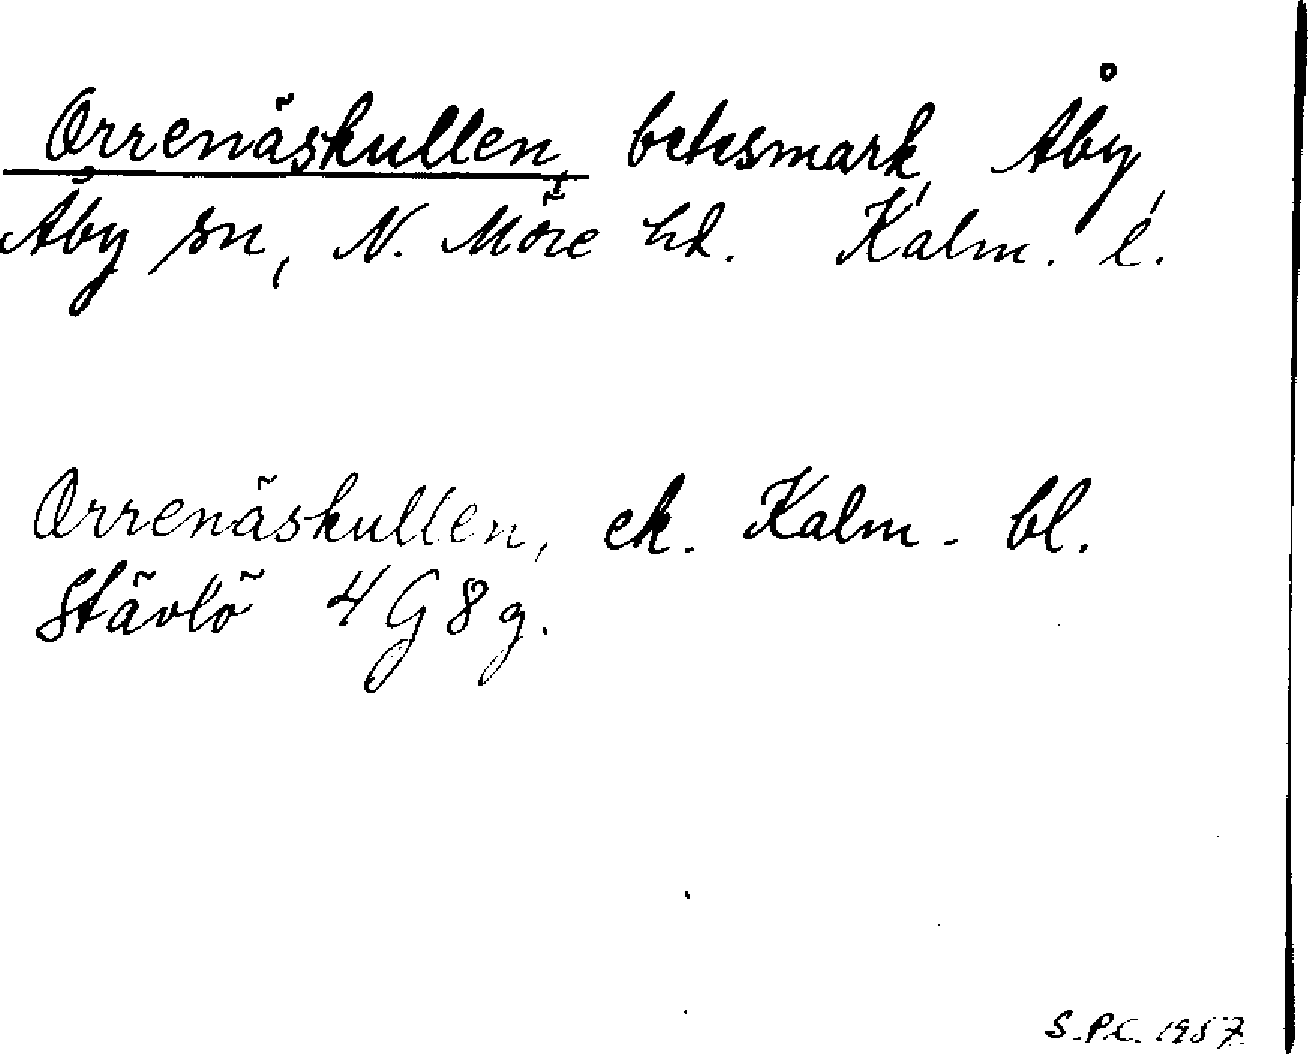 Orrenäskullen, betesmark, Åby,
Åby sn, N. Möre hd. Kalm. l.
Orrenäskullen, ek. Kalm. bl.
Stävlö 4G8g.
S.P.C. 1957